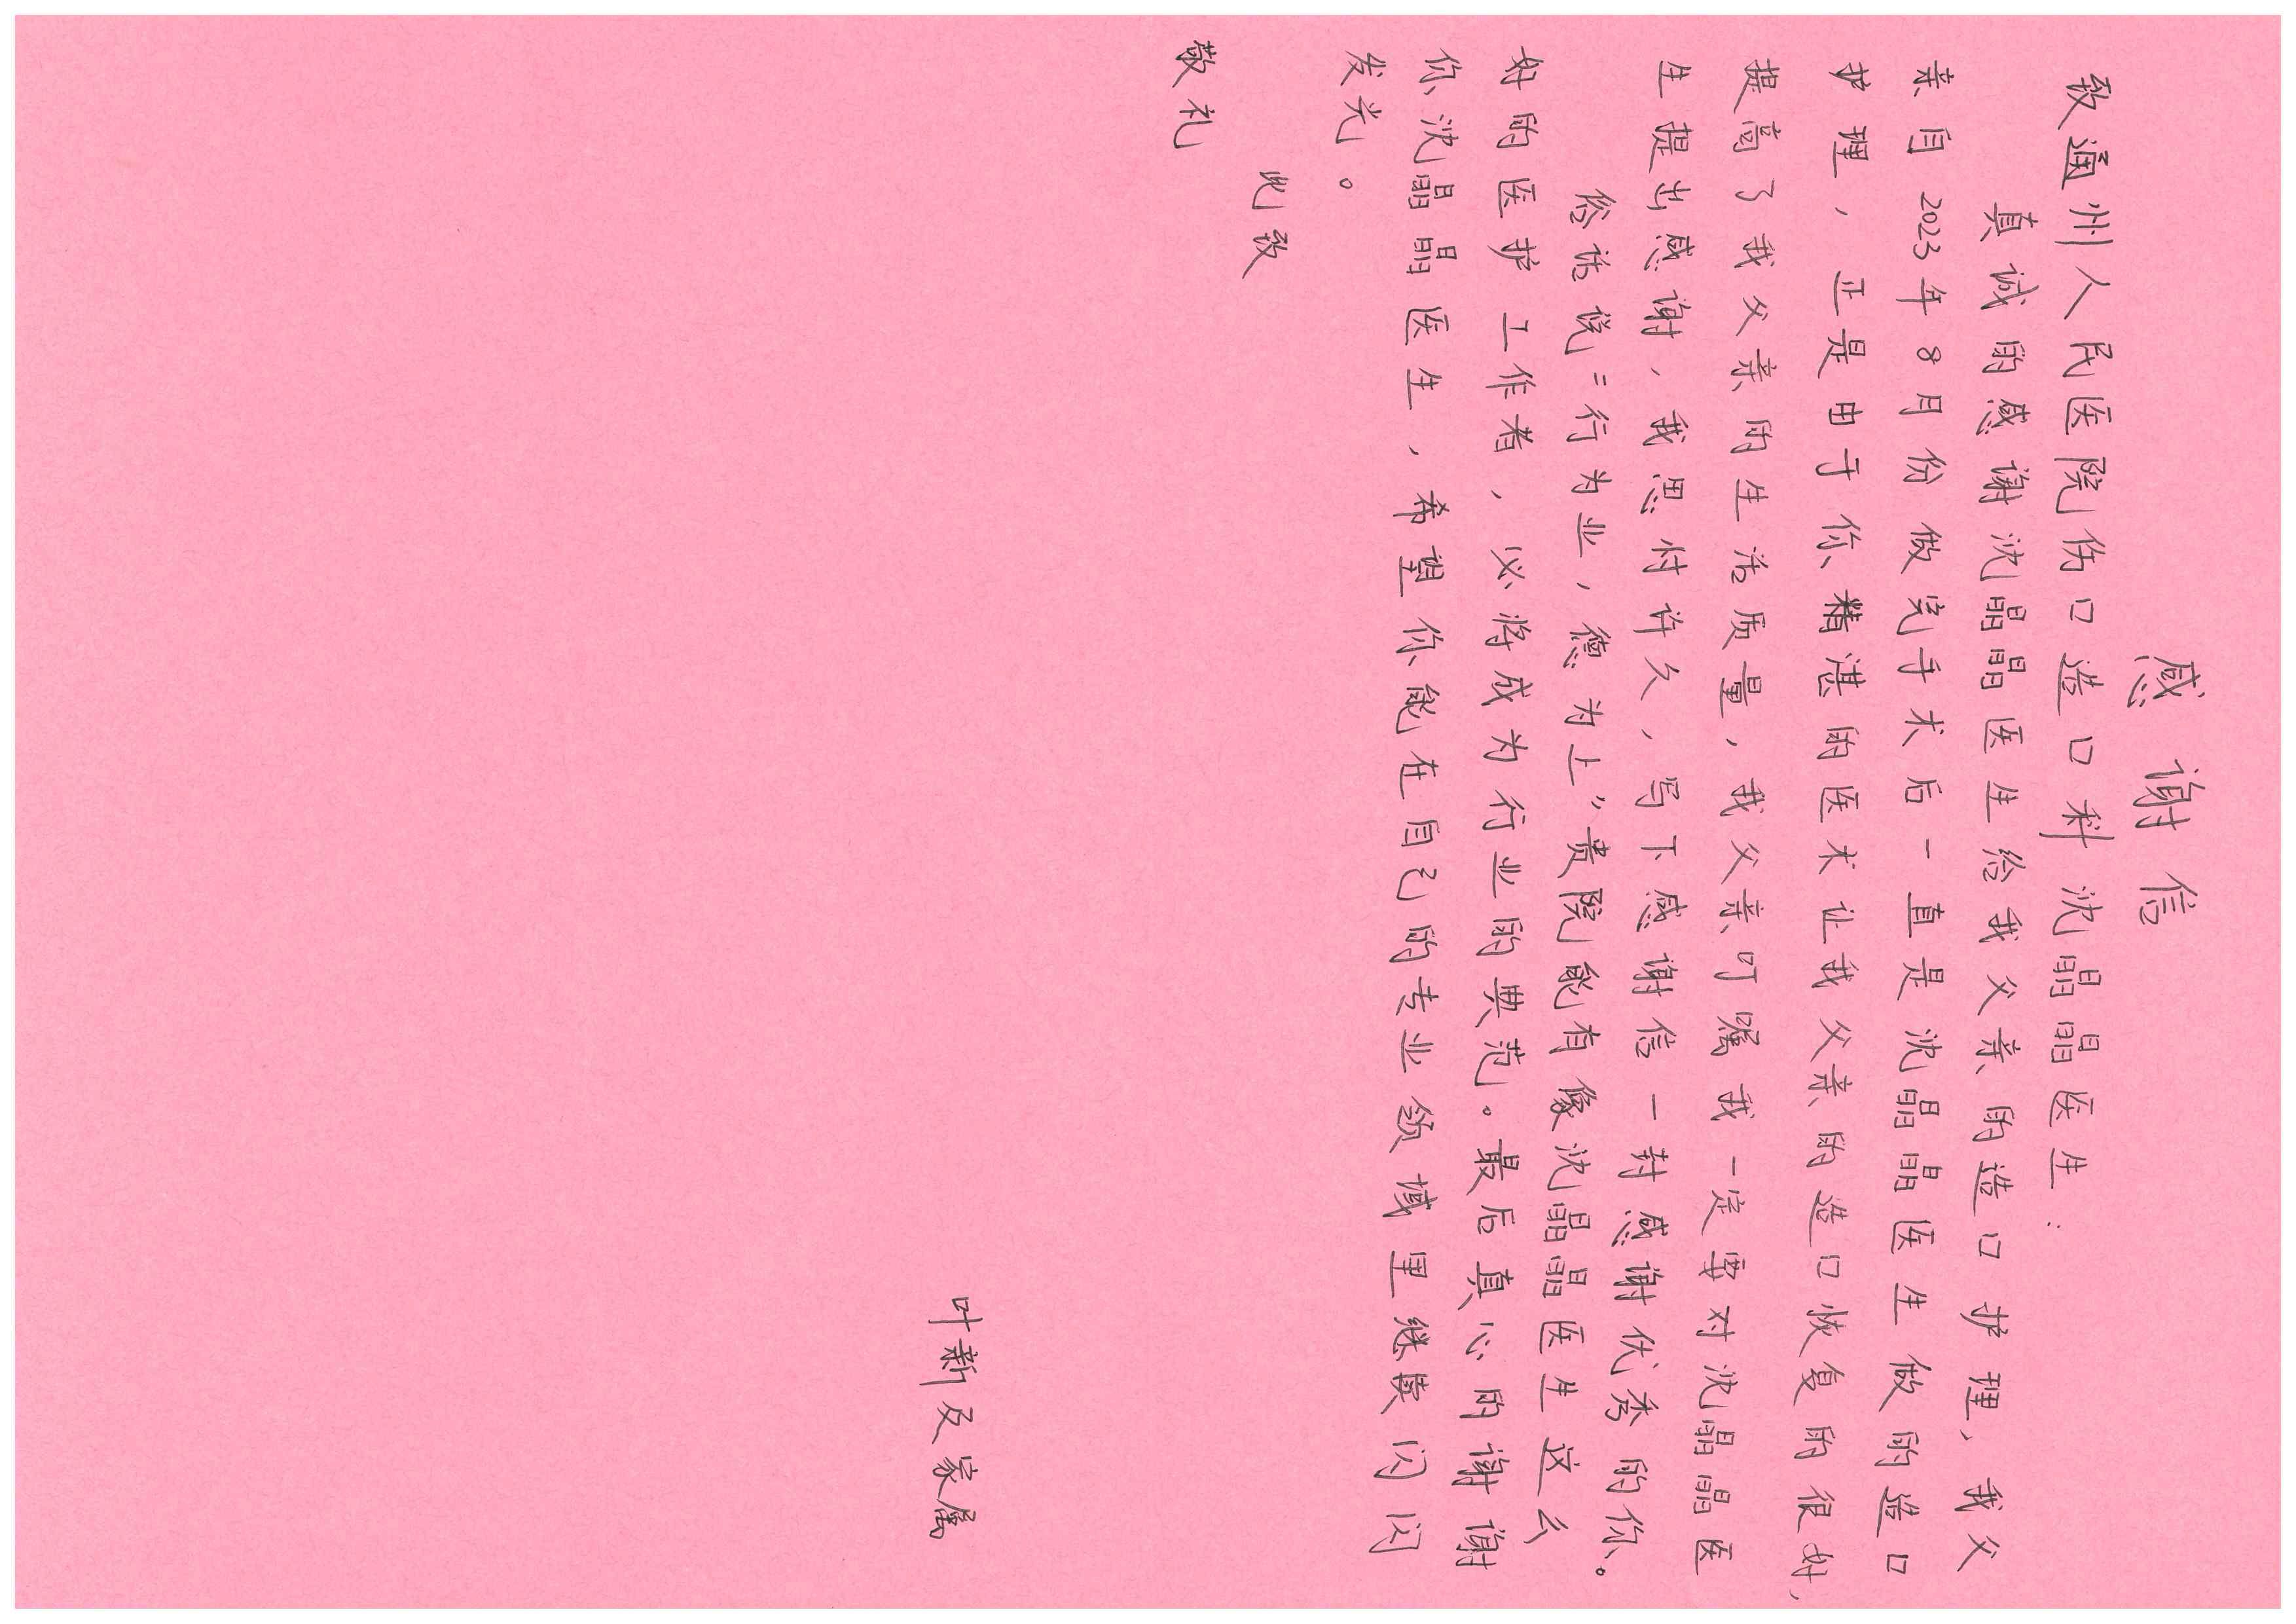 感谢信
致通州人民医院伤口造口科沈晶晶医生：
真诚的感谢沈晶晶医生给我父亲的造口护理，我父
亲自2023年8月份做完手术后一直是沈晶晶医生做的造口
护理，正是由于你精湛的医术让我父亲的造口恢复的很好，
提高了我父亲的生活质量，我父亲叮嘱我一定要对沈晶晶医
生提出感谢，我思忖许久，写下感谢信一封感谢优秀的你。
俗话说“行为业，德为上”贵院能有像沈晶晶医生这么
好的医护工作者，必将成为行业的典范。最后真心的谢谢
你沈晶晶医生，希望你能在自己的专业领域里继续闪闪
发光。
此致
敬礼
叶新及家属